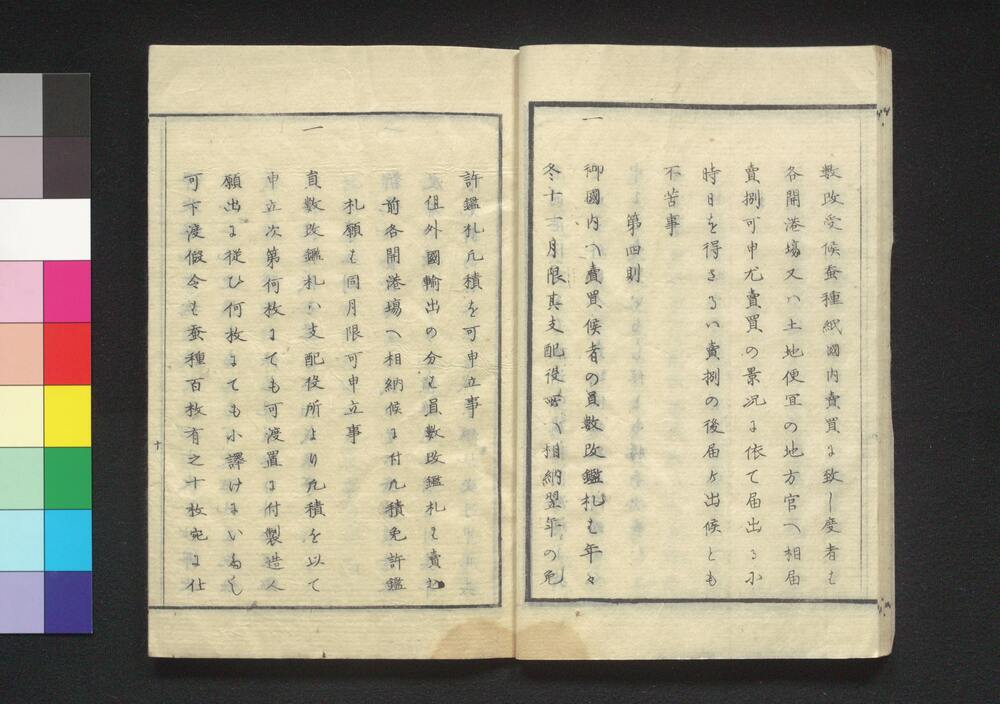 数改受候蚕種紙國内賣買に致し度者も
各開港塲又ハ土地便冝の地方官へ相届
賣捌可申尤賣買の景况に依て届出るに
時日を得さるハ賣捌の後届ケ出候とも
不苦事
第四則
一
御國内へ賣買候者の員数改鑑札も年々
冬十一月限其支配役所へ相納翌年の免
許鑑札凡積を可申立事
但外國輸出の分も員数改鑑札も賣込
前各開港塲へ相納候に付凡積免許鑑
札願も同月限可申立事
一
員数改鑑札ハ支配役所より凡積を以て
申立次第何枚にても可渡置に付製造人
願出に従ひ何枚にても小譯けにいたし
可下渡假令も蚕種百枚有之十枚宛に仕
十